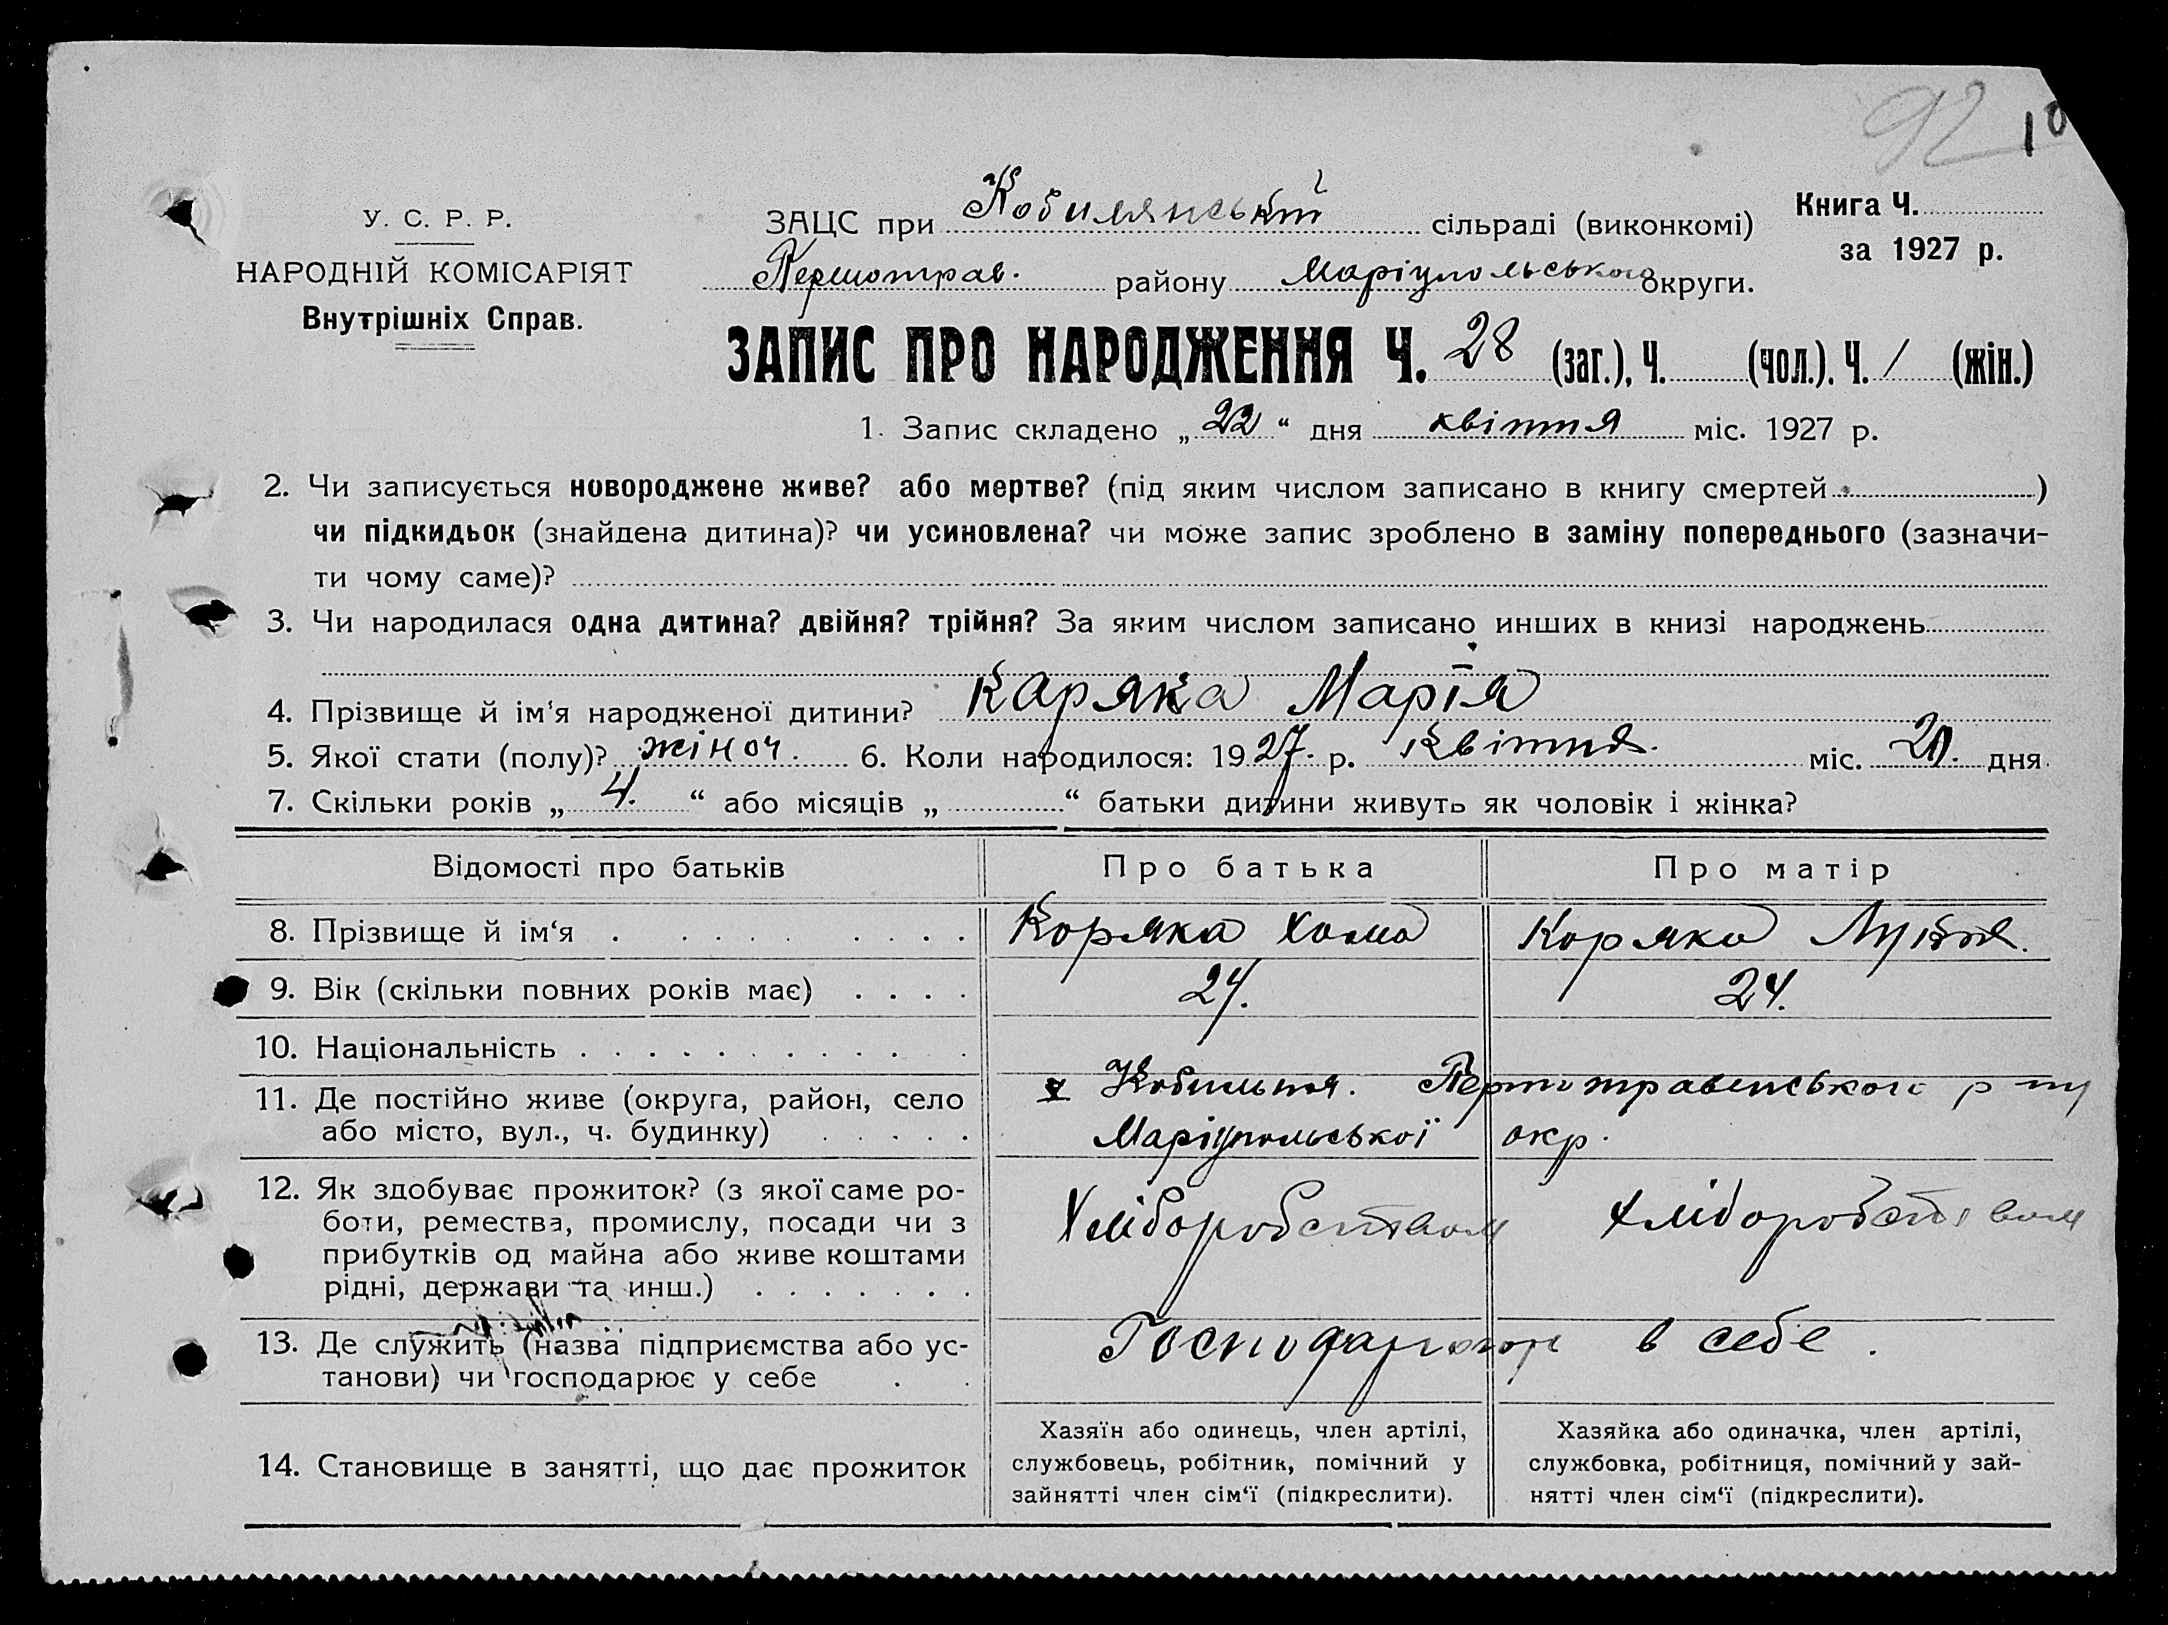 92 10
У. С. Р. Р.
НАРОДНІЙ КОМІСАРІЯТ
Внутрішніх Справ.
ЗАЦС при Кобилянській сільраді (виконкомі)
Першотрав. району Маріупольського округи.
Книга Ч.
за 1927 р.
ЗАПИС ПРО НАРОДЖЕННЯ Ч. 28 (заг.), Ч. (чол.). Ч. / (жін.)
1. Запис складено „22“ дня квітня міс. 1927 р.
2. Чи записується новороджене живе? або мертве? (під яким числом записано в книгу смертей )
чи підкидьок (знайдена дитина)? чи усиновлена? чи може запис зроблено в заміну попереднього (зазначи-
ти чому саме)?
3. Чи народилася одна дитина? двійня? трійня? За яким числом записано инших в книзі народжень
4. Прізвище й ім'я народженої дитини? Каряка Марія
5. Якої стати (полу)? жіноч. 6. Коли народилося: 1927. р. Квітня. міс. 20. дня
7. Скільки років „ 4. “ або місяців „ “ батьки дитини живуть як чоловік і жінка?
Відомості про батьків Про батька Про матір
8. Прізвище й ім‘я Коряка Хома Коряка
9. Вік (скільки повних років має) 24. 24.
10. Національність
11. Де постійно живе (округа, район, село
або місто, вул., ч. будинку)
Першотравенського р-ну
Маріупольської окр.
12. Як здобуває прожиток? (з якої саме ро-
боти, ремества, промислу, посади чи з
прибутків од майна або живе коштами
рідні, держави та инш.)
Хліборобством Хліборобством
13. Де служить (назва підприємства або ус-
танови) чи господарює у себе
в себе.
14. Становище в занятті, що дає прожиток
Хазяїн або одинець, член артілі,
службовець, робітник, помічний у
зайнятті член сім‘ї (підкреслити).
Хазяйка або одиначка, член артілі,
службовка, робітниця, помічний у зай-
нятті член сім‘ї (підкреслити).